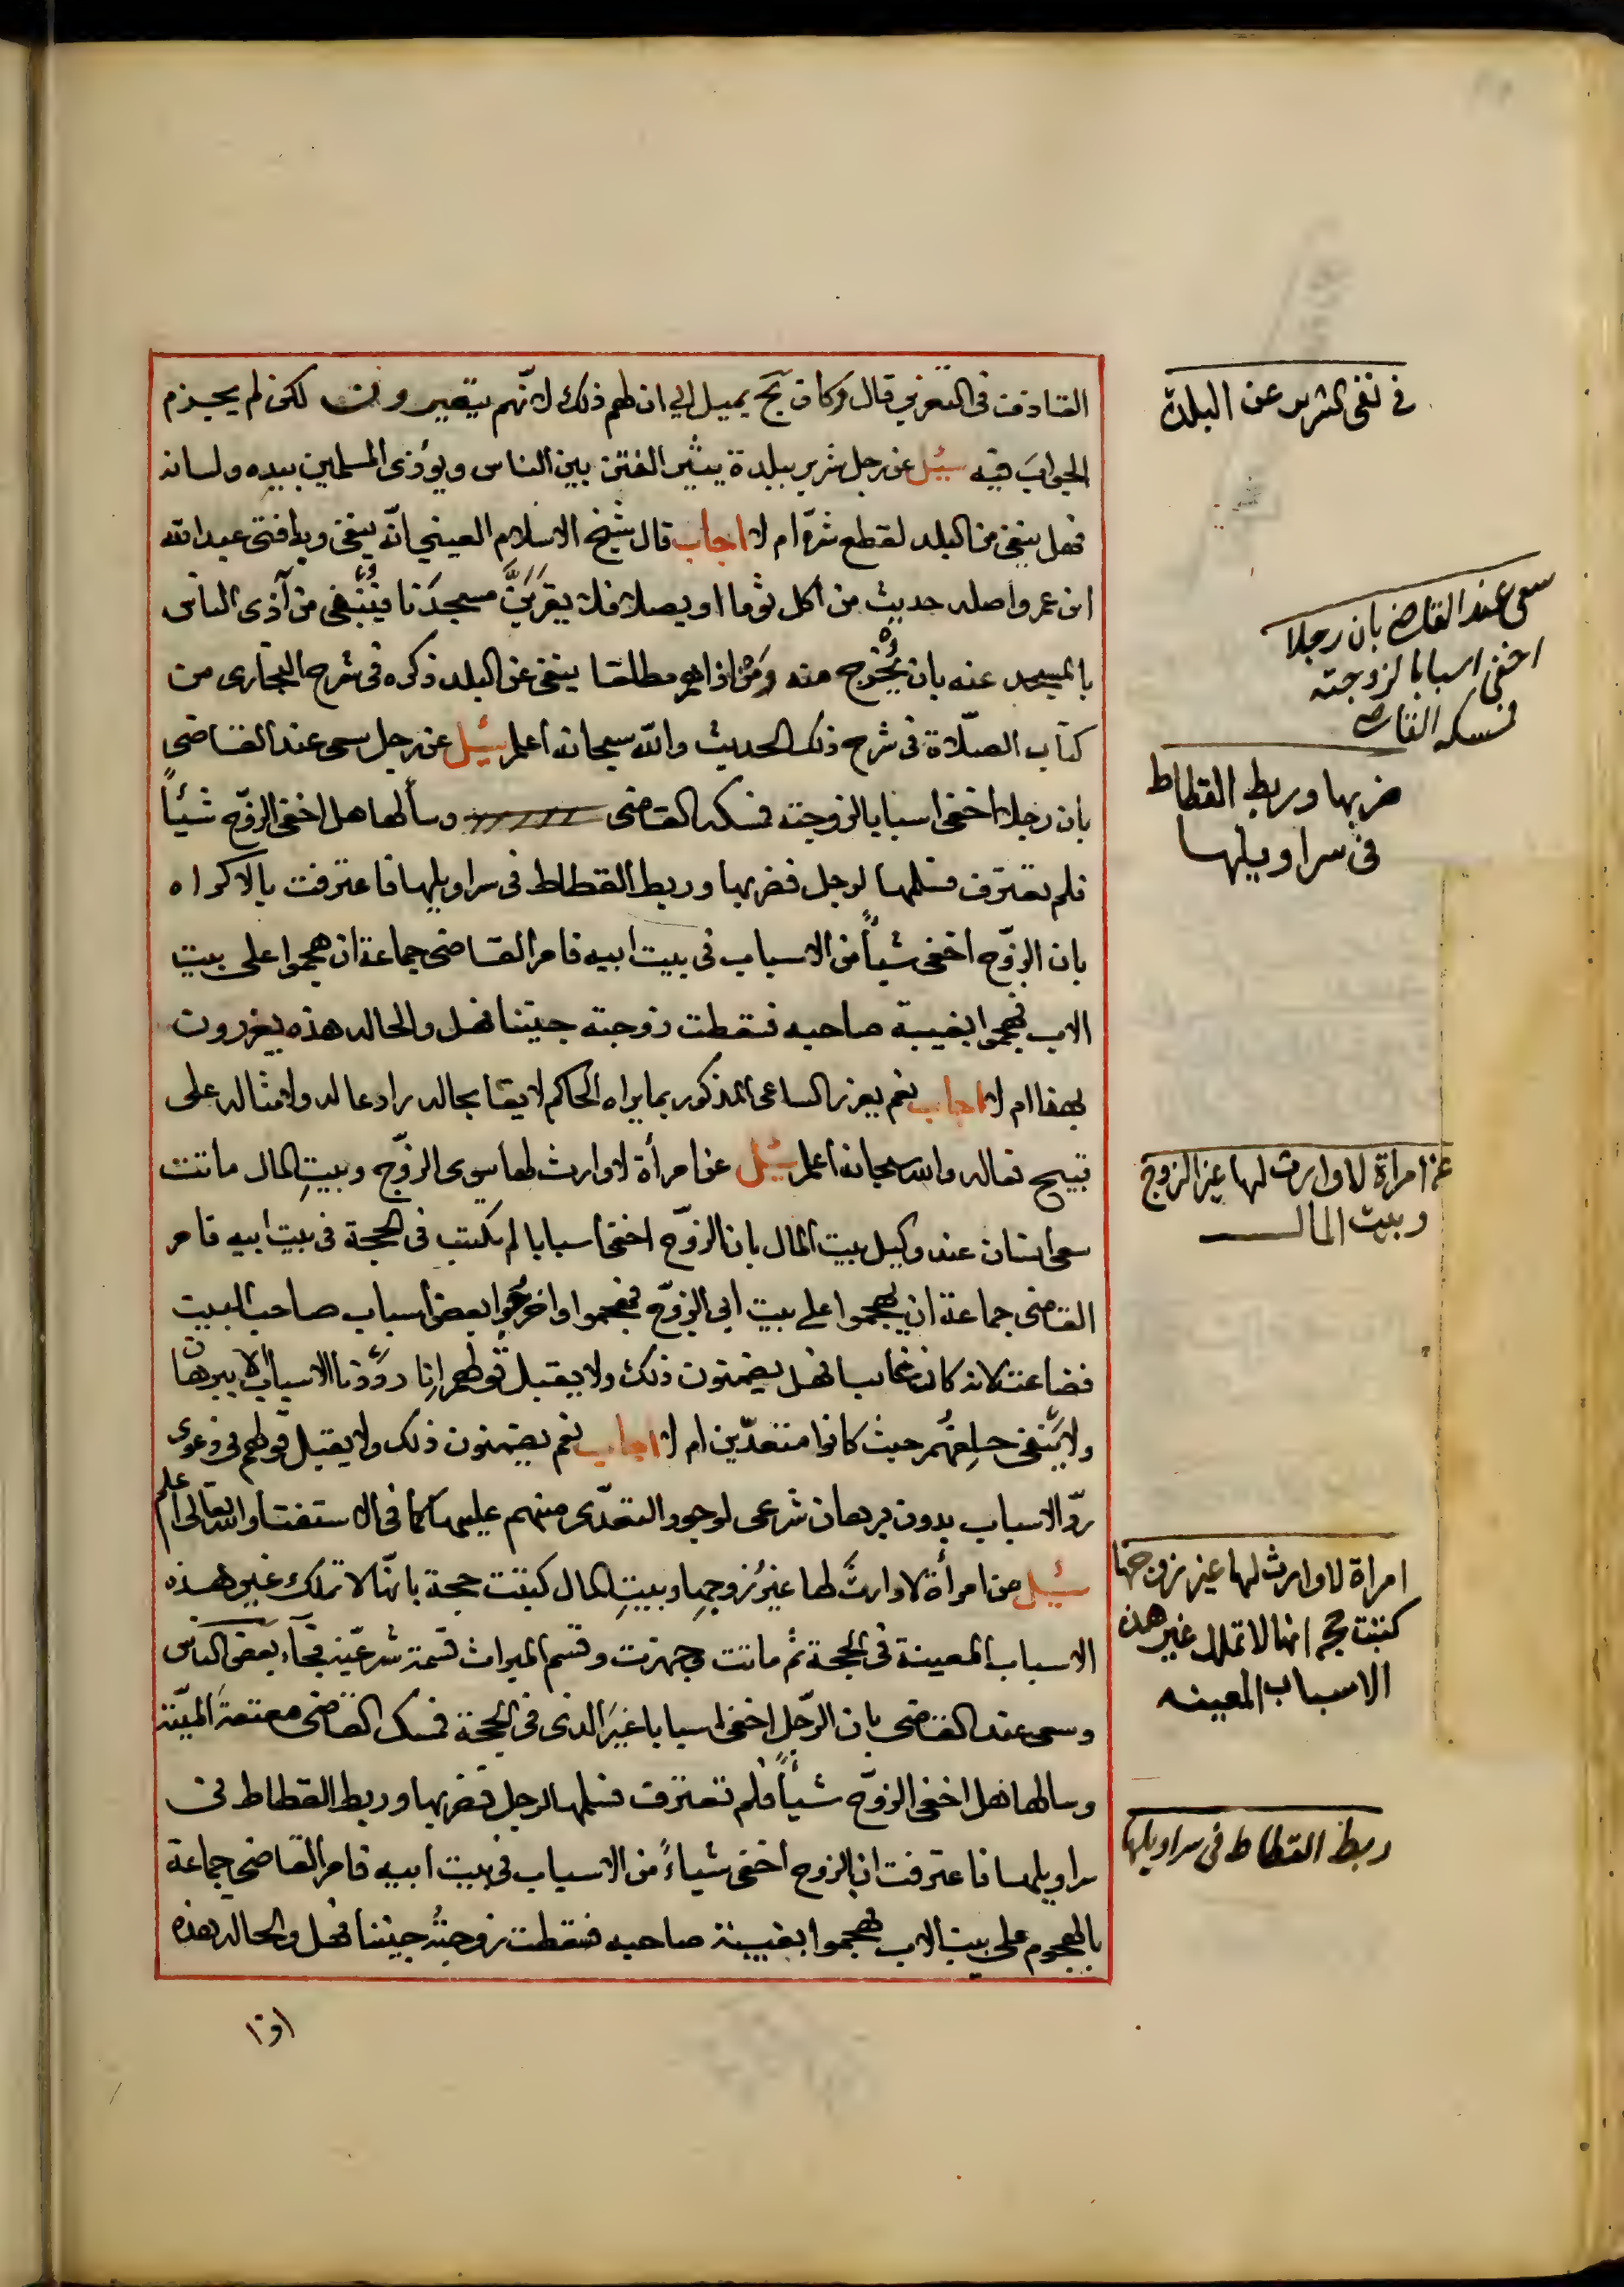 القاذف في التعزير قال وكان بح يميل الى ان لهم ذلك لانهم يتعيرون لكن لم يجزم
الجواب فيه سئل عن رجل شرير ببلدة يثير الفتن بين الناس ويؤذى المسلمين بيده ولسانه
فهل ينفى من البلد لقطع شره ام لا اجاب قال شيخ الاسلام العيني انه ينفى وبه افتى عبد الله
ابن عمر واصله حديث من اكل ثوما او بصلا فلا يقربن مسجدنا فينفى من آذى الناس
بالمسجد عنه بان يخرج منه ومن اذاهم مطلقا ينفى عن البلد ذكره في شرح البخارى من
كتاب الصلاة في شرح ذلك الحديث والله سبحانه اعلم سئل عن رجل سعى عند القاضى
بان رجلا اخفى اسبابا لزوجته فمسكه القاضى وسألها هل اخفى الزوج شيئاً
فلم تعترف فسلمها لرجل فضربها وربط القطاط في سراويلها فاعترفت بالاكراه
بان الزوج اخفى شيأ من الاسباب في بيت ابيه فامر القاضى جماعة ان هجموا على بيت
الاب فهجموا بغيبة صاحبه فسقطت زوجته جنينا فهل والحاله هذه يعزرون
بهذا ام لا اجاب نعم يعزر الساعى المذكور بما يراه الحاكم لايقا بحاله رادعا له ولامثاله على
قبيح فعاله والله سبحانه اعلم سئل عن امرأة لا وارث لها سوى الزوج وبيت المال ماتت
سعى انسان عند وكيل بيت المال بان الزوج اخفى اسبابا لم تكتب في الحجة في بيت ابيه فامر
القاضى جماعة ان يهجموا على بيت ابى الزوج فهجموا واخرجوا بعض اسباب صاحب البيت
فضاعت لانه كان غايبا فهل يضمنون ذلك ولا يقبل قولهم انا رددنا الاسباب الا ببرهان
ولا يكفى حلفهم حيث كانوا متعدين ام لا اجاب نعم يضمنون ذلك ولا يقبل قولهم في دعوى
رد الاسباب بدون برهان شرعى لوجود التعدى منهم عليها كما في الاستفتا والله تعالى اعلم
سئل عن امرأة لا وارث لها غير زوجها وبيت المال كتبت حجة بانها لا تملك غير هذه
الاسباب المعينة في الحجة ثم ماتت وجهزت وقسم الميراث قسمة شرعية فجاء بعض الناس
وسعى عند القاضى بان الرجل اخفى اسبابا غير الذى في الحجة فمسك القاضى معتقة الميتة
وسالها هل اخفى الزوج شيأ فلم تعترف فسلمها لرجل فضربها وربط القطاط في
سراويلها فاعترفت ان الزوج اخفى شياء من الاسباب في بيت ابيه فامر القاضى جماعة
بالهجوم على بيت الاب فهجموا بغيبة صاحبه فسقطت زوجته جنينا فهل والحاله هذه
في نفى الشرير عن البلدة
سعى عند القاضى بان رجلا
اخفى اسبابا لزوجته
فمسكه القاضى
ضربها وربط القطاط
فى سراويلها
عن امراة لا وارث لها غير الزوج
وبيت المال
امراة لا وارث لها غير زوجها
كتبت حجه انها لا تملك غير هذه
الاسباب المعينه
ربط القطاط فى سراويلها